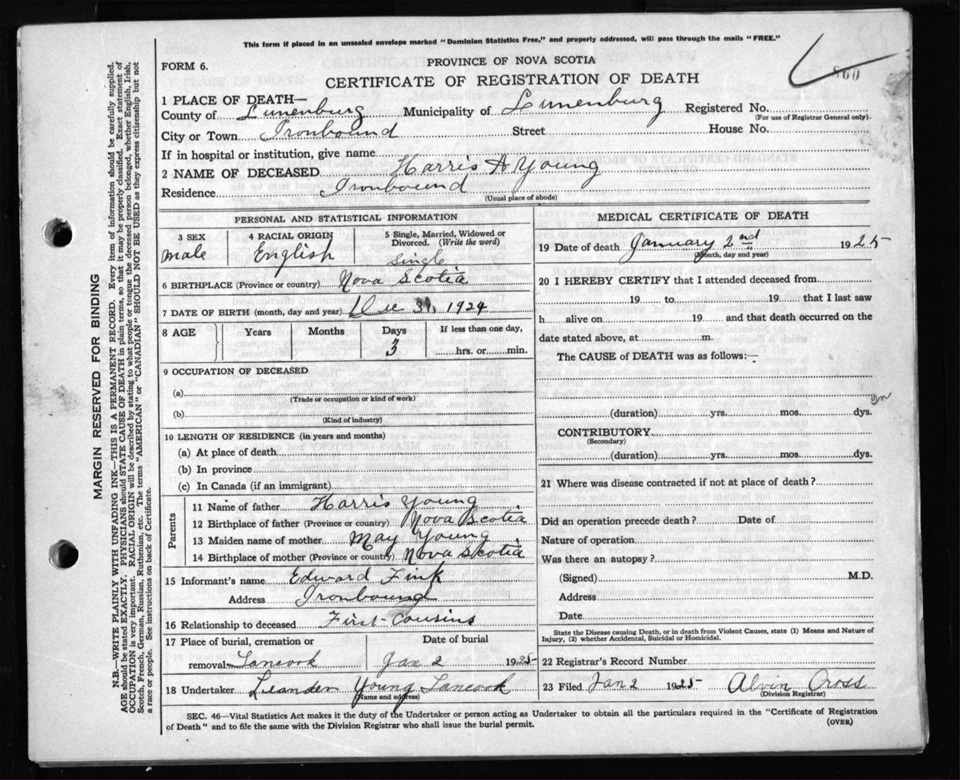 This form if placed in an unsealed envelope marked "Dominion Statistics Free," and properly addressed, will pass through the mails "FREE."
FORM 6.
PROVINCE OF NOVA SCOTIA
CERTIFICATE OF REGISTRATION OF DEATH
860
1 PLACE OF DEATH—
County of Lunenburg Municipality of Lunenburg Registered No.
(For use of Registrar General only)
City or Town Ironbound Street House No.
If in hospital or institution, give name
2 NAME OF DECEASED Harris A Young
Residence Ironbound
(Usual place of abode)
PERSONAL AND STATISTICAL INFORMATION
3 SEX 4 RACIAL ORIGIN 5 Single, Married, Widowed or Divorced. (Write the word)
male English Single
6 BIRTHPLACE (Province or country) Nova Scotia
7 DATE OF BIRTH (month, day and year) Dec 31, 1924
8 AGE Years Months Days If less than one day,
3 hrs. or min.
9 OCCUPATION OF DECEASED
(a)
(Trade or occupation or kind of work)
(b)
(Kind of industry)
10 LENGTH OF RESIDENCE (in years and months)
(a) At place of death
(b) In province
(c) In Canada (if an immigrant)
Parents
11 Name of father Harris Young
12 Birthplace of father (Province or country) Nova Scotia
13 Maiden name of mother May Young
14 Birthplace of mother (Province or country) Nova Scotia
15 Informant's name Edward Fink
Address Ironbound
16 Relationship to deceased First-Cousins
17 Place of burial, cremation or Date of burial
removal Tancook Jan 2 1925
18 Undertaker Leander Young Tancook
(Name and address)
MEDICAL CERTIFICATE OF DEATH
19 Date of death January 2nd 1925
(Month, day and year)
20 I HEREBY CERTIFY that I attended deceased from
19 to 19 that I last saw
h alive on 19 and that death occurred on the
date stated above, at m.
The CAUSE of DEATH was as follows:—
(duration) yrs. mos. dys.
CONTRIBUTORY
(Secondary)
(duration) yrs. mos. dys.
21 Where was disease contracted if not at place of death?
Did an operation precede death? Date of
Nature of operation
Was there an autopsy?
(Signed) M.D.
Address
Date
State the Disease causing Death, or in death from Violent Causes, state (1) Means and Nature of
Injury, (2) whether Accidental, Suicidal or Homicidal.
22 Registrar's Record Number
23 Filed Jan 2 1925 Alvin Cross
(Division Registrar)
SEC. 46—Vital Statistics Act makes it the duty of the Undertaker or person acting as Undertaker to obtain all the particulars required in the "Certificate of Registration
of Death" and to file the same with the Division Registrar who shall issue the burial permit.
(OVER)
MARGIN RESERVED FOR BINDING
N.B.—WRITE PLAINLY WITH UNFADING INK—THIS IS A PERMANENT RECORD. Every item of information should be carefully supplied.
AGE should be stated EXACTLY. PHYSICIANS should STATE CAUSE OF DEATH in plain terms, so that it may be properly classified. Exact statement of
OCCUPATION is very important. RACIAL ORIGIN will be described by stating to what people or tongue the deceased person belonged, whether English, Irish,
Scotch, French, German, Russian, Ruthenian, etc. The terms "AMERICAN" or "CANADIAN" SHOULD NOT BE USED as they express citizenship but not
a race or people. See instructions on back of Certificate.